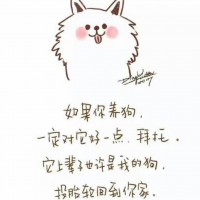 如果你养狗，
一定对它好一点，拜托。
它上辈子也许是我的狗，
投胎轮回到你家。